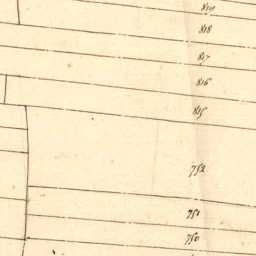 819
818
817
816
815
752
751
750